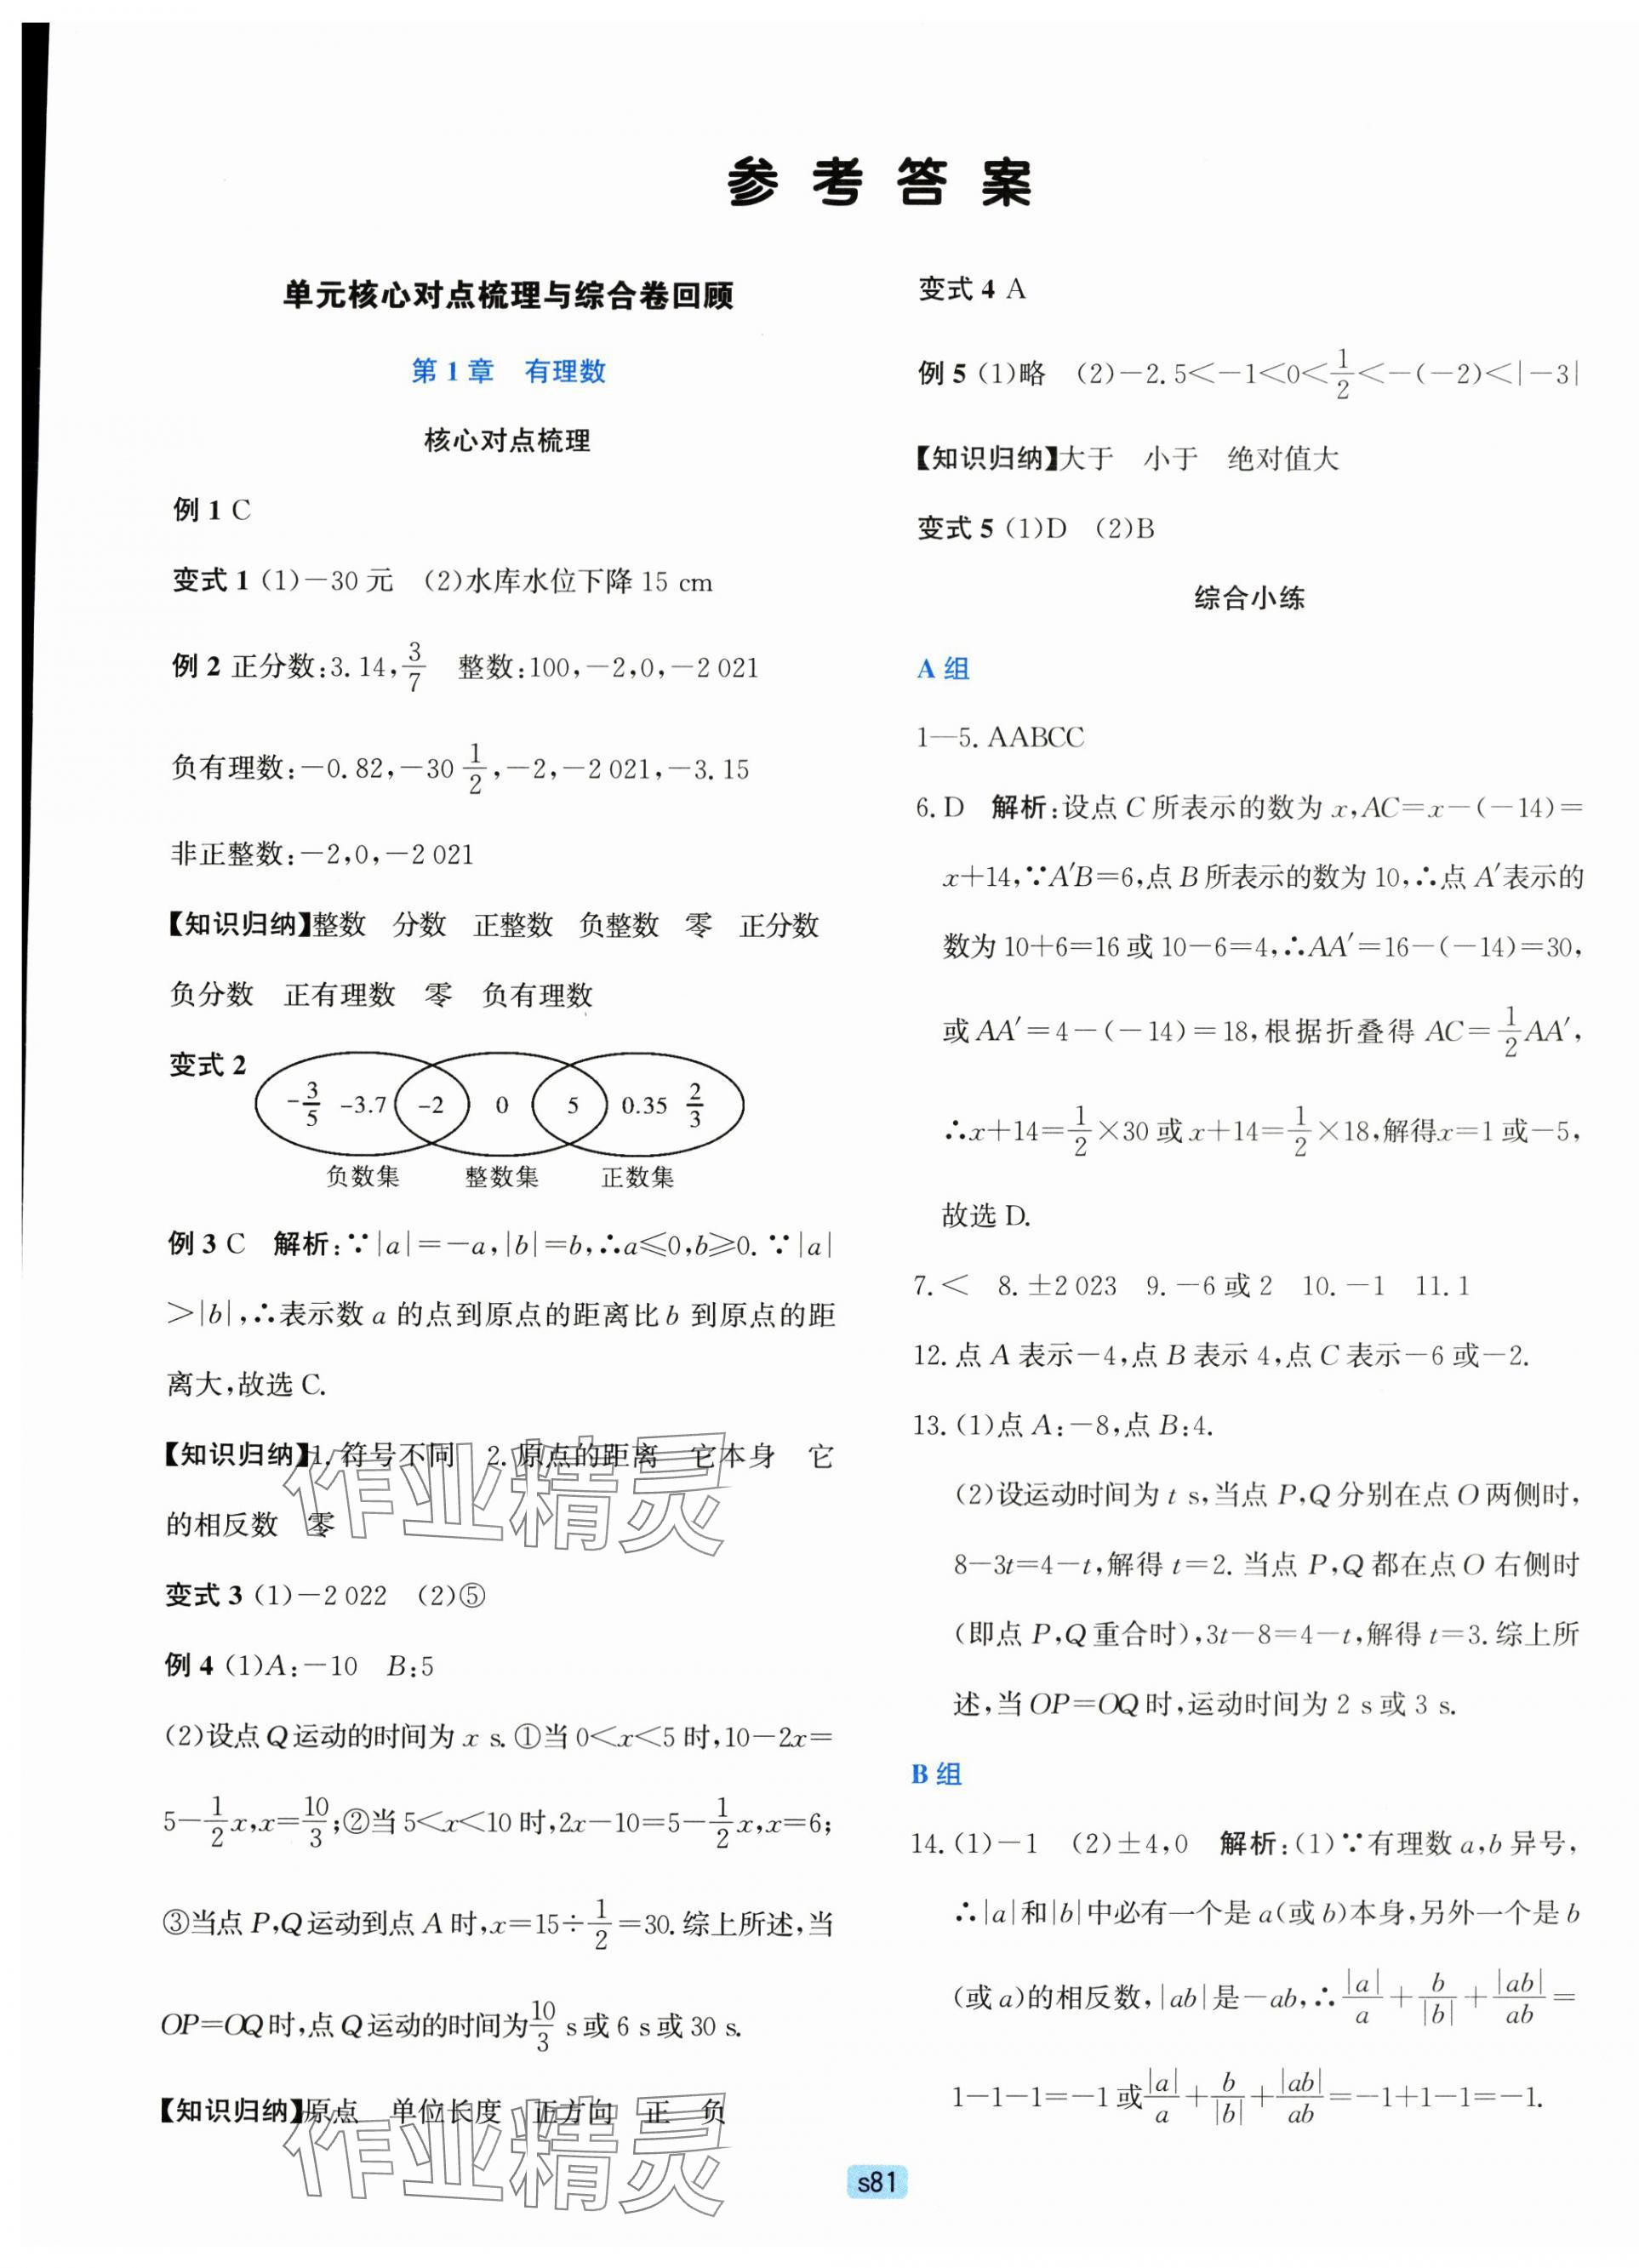 参考答案
单元核心对点梳理与综合卷回顾
第1章 有理数
核心对点梳理
例1 C
变式1 (1)-30元 (2)水库水位下降15 cm
例2 正分数:3.14,3/7 整数:100,-2,0,-2 021
负有理数:-0.82,-30 1/2,-2,-2 021,-3.15
非正整数:-2,0,-2 021
【知识归纳】整数 分数 正整数 负整数 零 正分数
负分数 正有理数 零 负有理数
变式2
-3/5 -3.7 -2 0 5 0.35 2/3
负数集 整数集 正数集
例3 C 解析:∵|a|=-a,|b|=b,∴a≤0,b≥0.∵|a|
>|b|,∴表示数a的点到原点的距离比b到原点的距
离大,故选C.
【知识归纳】1.符号不同 2.原点的距离 它本身 它
的相反数 零
变式3 (1)-2 022 (2)⑤
例4 (1)A:-10 B:5
(2)设点Q运动的时间为x s.①当0<x<5时,10-2x=
5-1/2x,x=10/3;②当5<x<10时,2x-10=5-1/2x,x=6;
③当点P,Q运动到点A时,x=15÷1/2=30.综上所述,当
OP=OQ时,点Q运动的时间为10/3 s或6 s或30 s.
【知识归纳】原点 单位长度 正方向 正 负
变式4 A
例5 (1)略 (2)-2.5<-1<0<1/2<-(-2)<|-3|
【知识归纳】大于 小于 绝对值大
变式5 (1)D (2)B
综合小练
A组
1—5. AABCC
6. D 解析:设点C所表示的数为x,AC=x-(-14)=
x+14,∵A′B=6,点B所表示的数为10,∴点A′表示的
数为10+6=16或10-6=4,∴AA′=16-(-14)=30,
或AA′=4-(-14)=18,根据折叠得AC=1/2AA′,
∴x+14=1/2×30或x+14=1/2×18,解得x=1或-5,
故选D.
7.< 8.±2 023 9.-6或2 10.-1 11.1
12.点A表示-4,点B表示4,点C表示-6或-2.
13.(1)点A:-8,点B:4.
(2)设运动时间为t s,当点P,Q分别在点O两侧时,
8-3t=4-t,解得t=2.当点P,Q都在点O右侧时
(即点P,Q重合时),3t-8=4-t,解得t=3.综上所
述,当OP=OQ时,运动时间为2 s或3 s.
B组
14.(1)-1 (2)±4,0 解析:(1)∵有理数a,b异号,
∴|a|和|b|中必有一个是a(或b)本身,另外一个是b
(或a)的相反数,|ab|是-ab,∴|a|/a+b/|b|+|ab|/ab=
1-1-1=-1或|a|/a+b/|b|+|ab|/ab=-1+1-1=-1.
作业精灵
作业精灵
s81